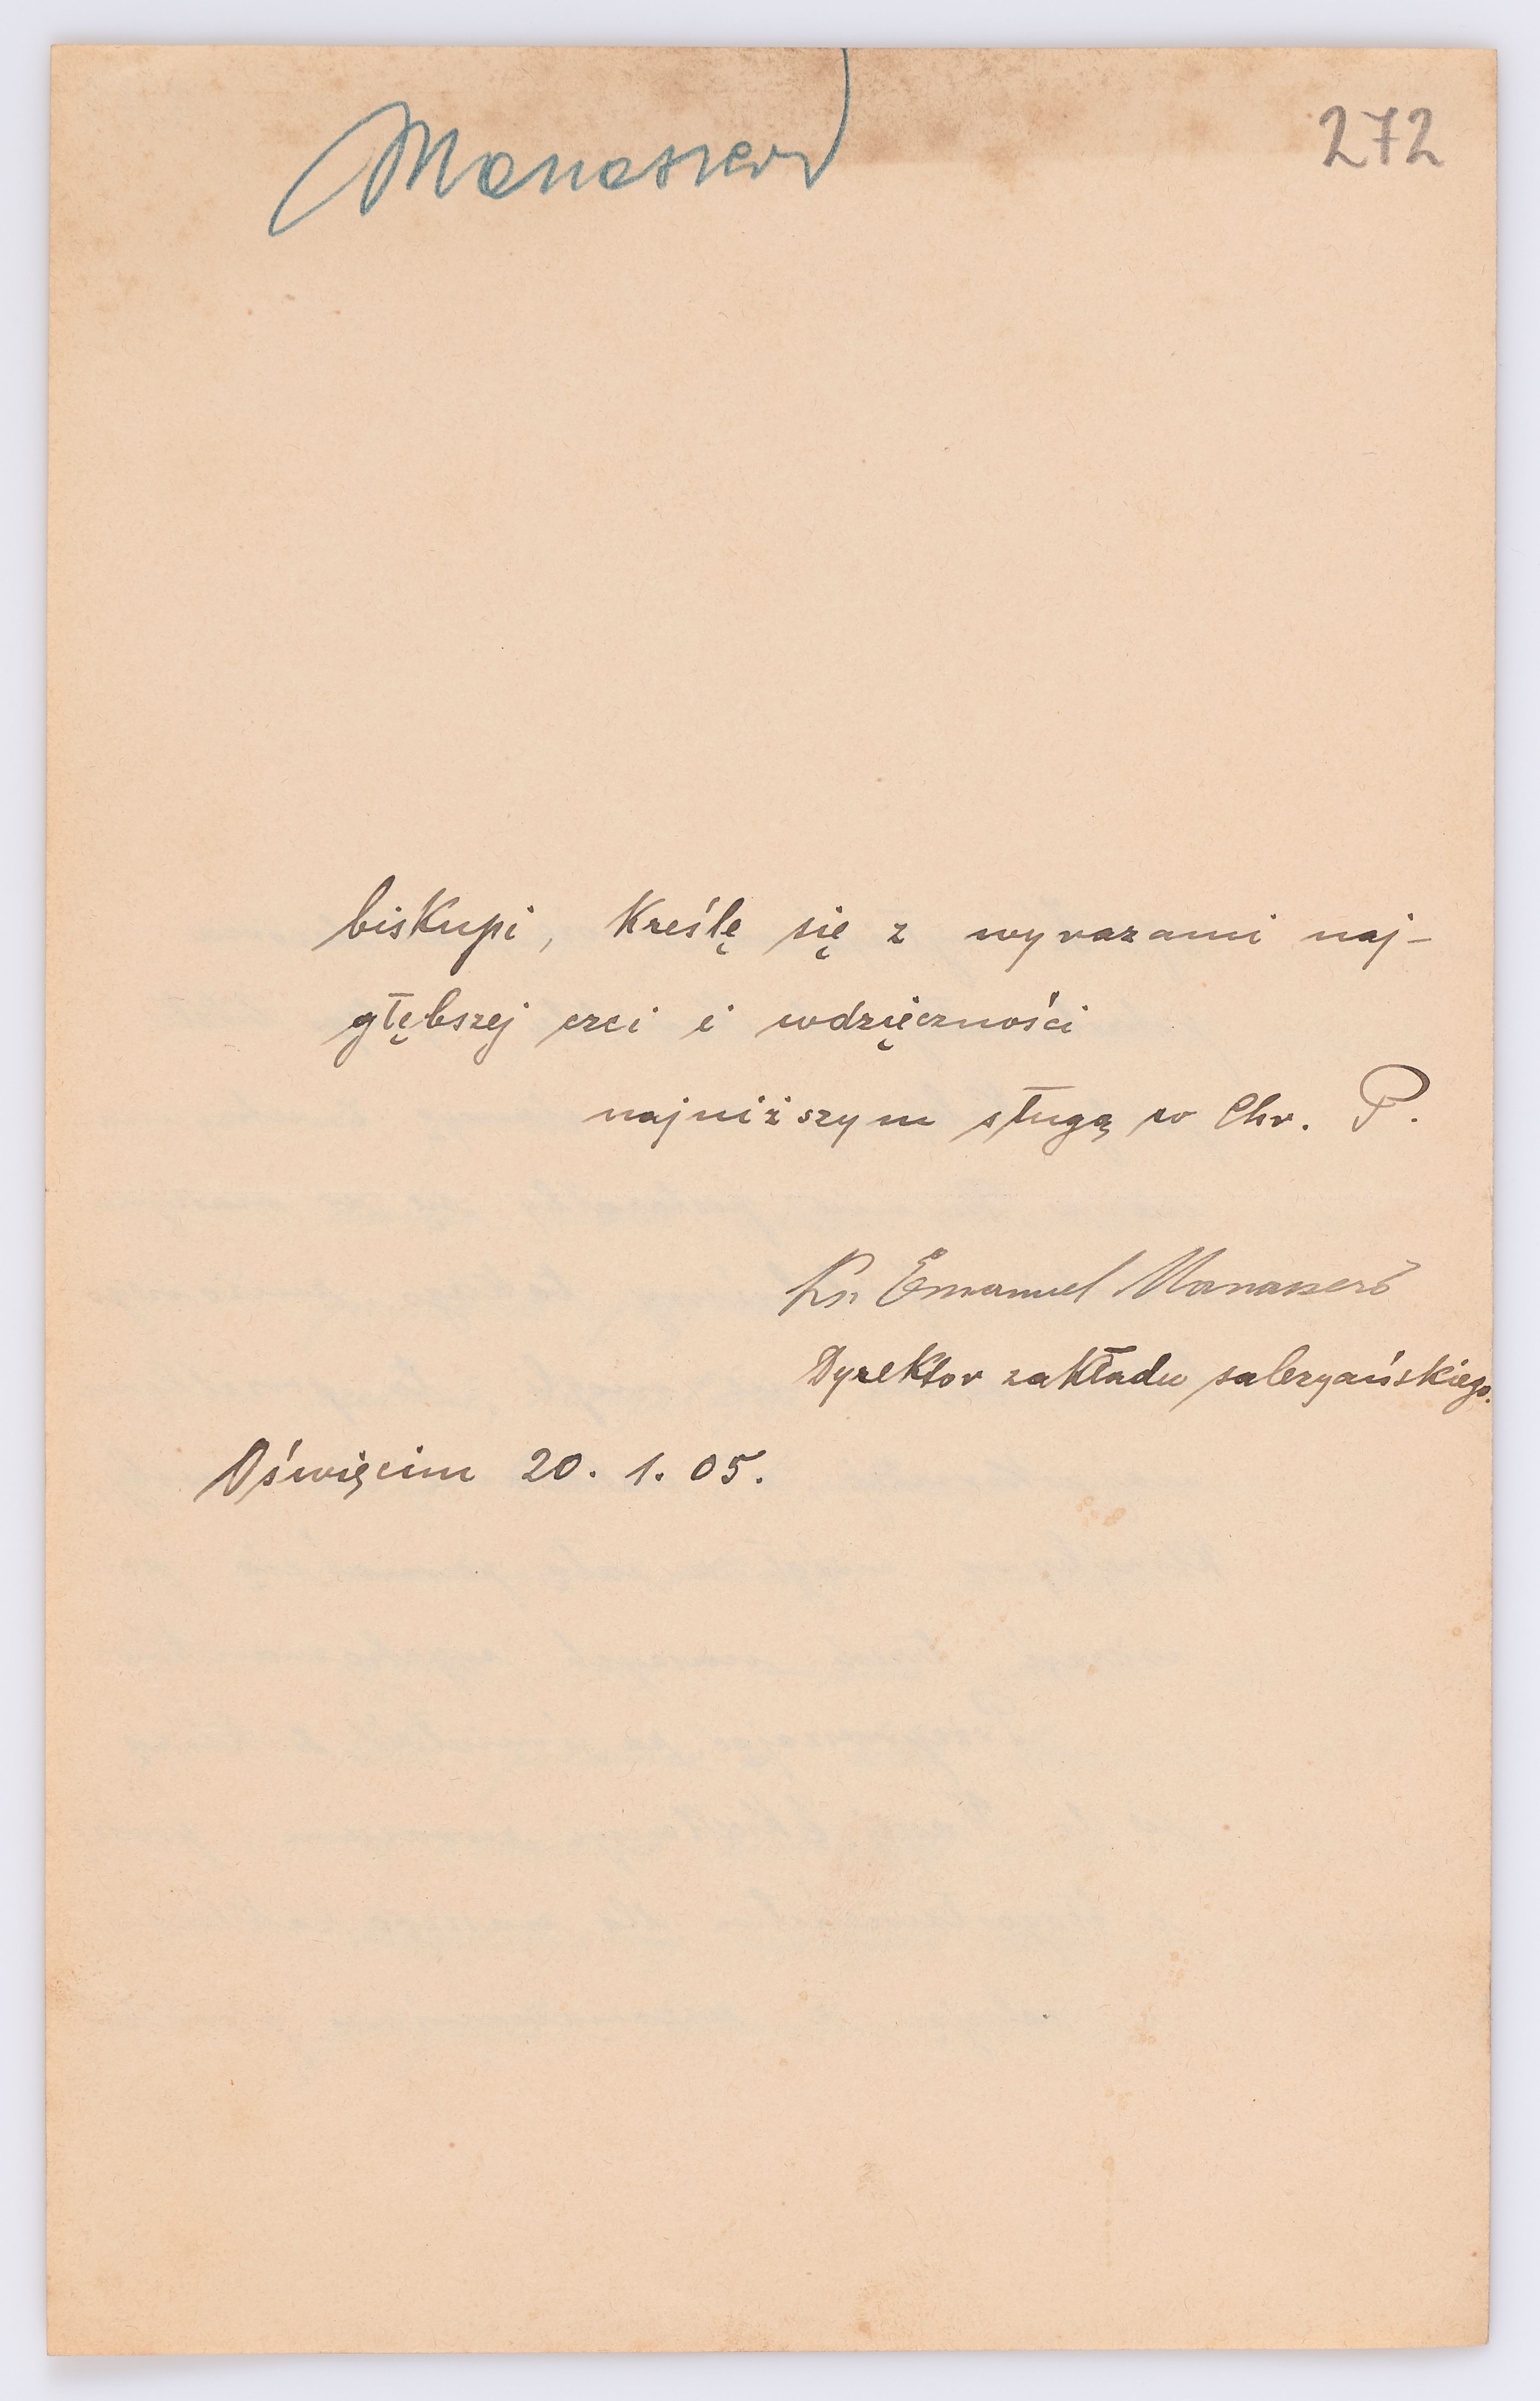 Manasser
272
biskupi, kreślę się z wyrazami naj-
głębszej czci i wdzięczności
najniższym sługą w Chr. P.
Ks. Emanuel Manassero
Dyrektor zakładu salezyańskiego.
Oświęcim 20. 1. 05.